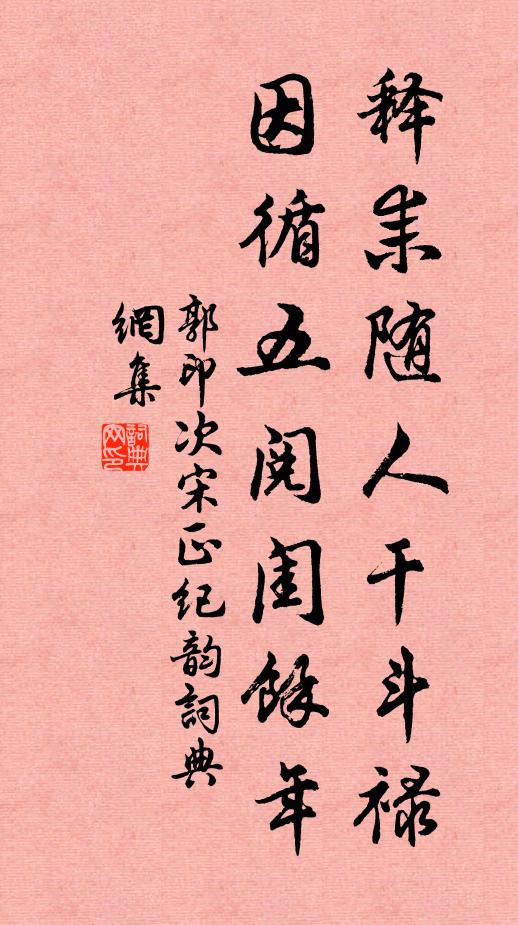 释耒随人干斗禄
因循五阅闰餘年
郭印次宋正纪韵詞典
網集
詞典
网印